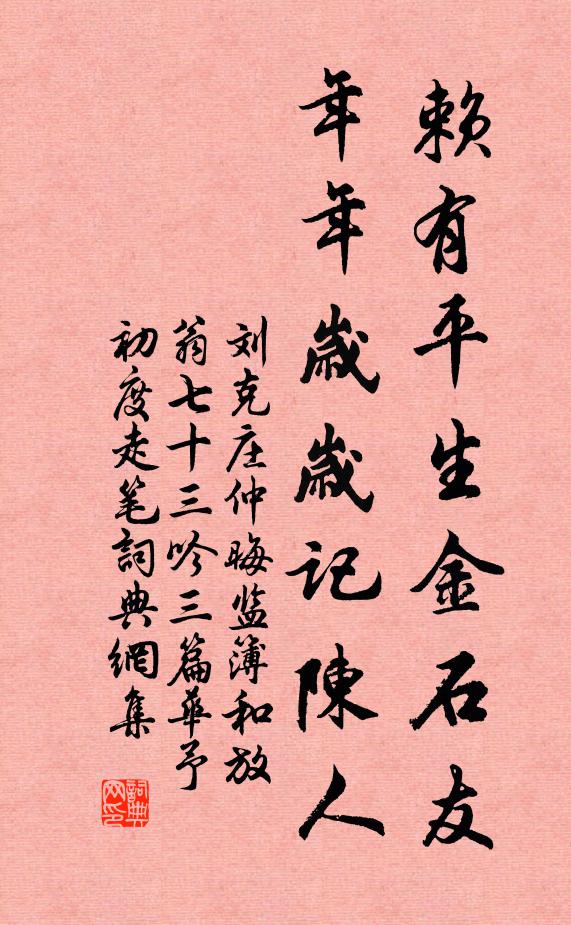 賴有平生金石友
年年歲歲記陳人
刘克庄仲晦监簿和放
翁七十三吟三篇華予
初度走笔詞典網集
詞典网印